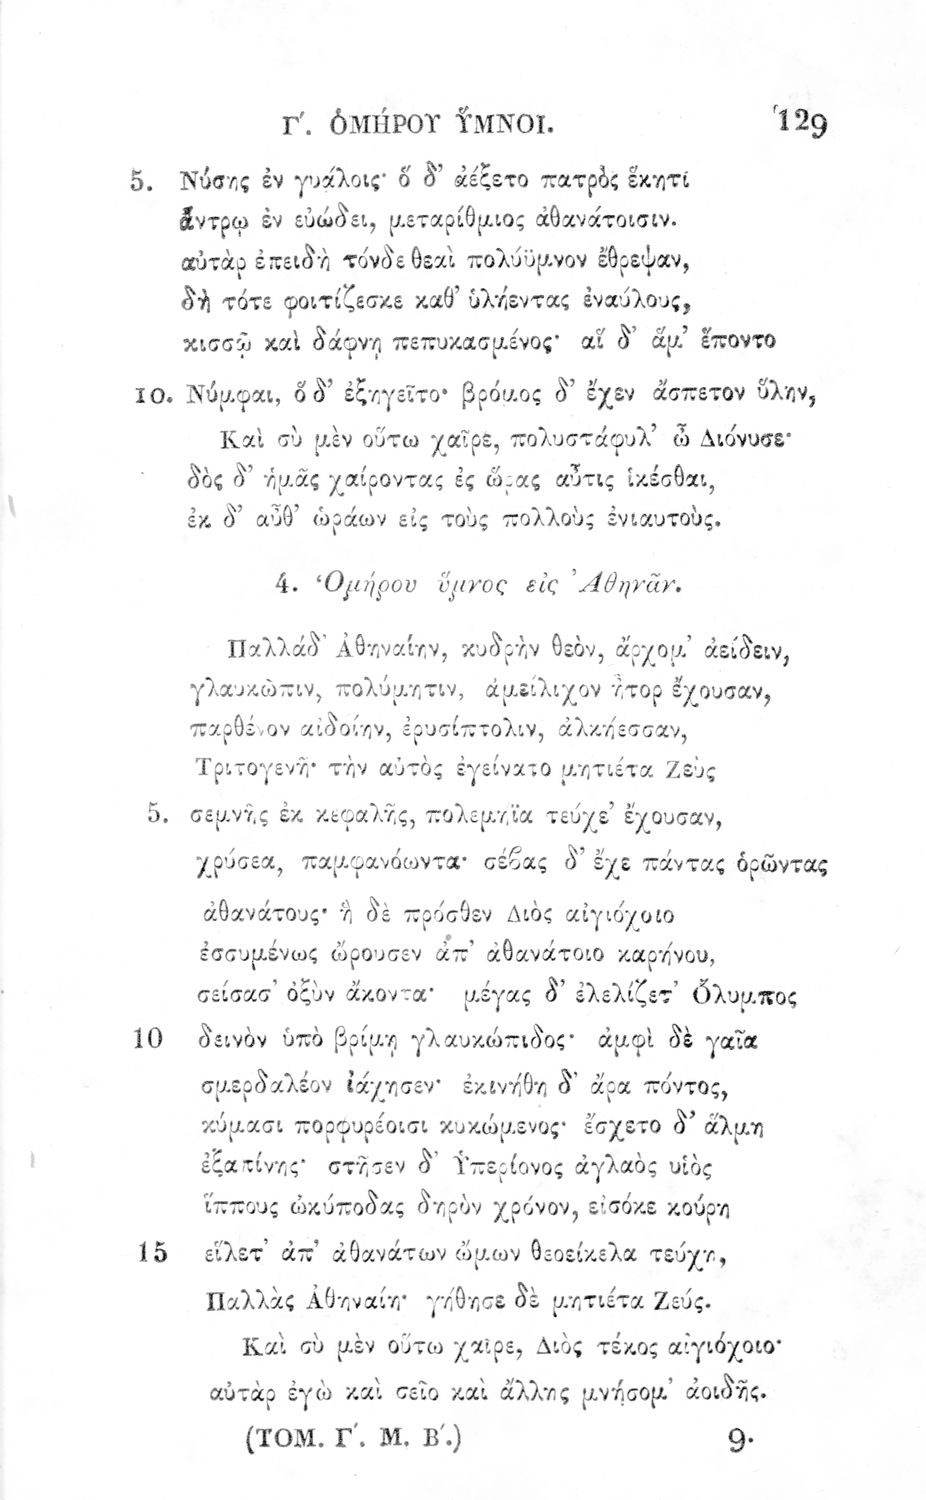 Γ΄. ὉΜΗΡΟΥ ὝΜΝΟΙ. 129
5. Νύσης ἐν γυάλοις· ὅ δ' ἀέξετο πατρὸς ἕκητι
ἄντρῳ ἐν εὐώδει, μεταρίθμιος ἀθανάτοισιν.
αὐτὰρ ἐπειδὴ τόνδε θεαὶ πολύϋμνον ἔθρεψαν,
δὴ τότε φοιτίζεσκε καθ' ὑλήεντας ἐναύλους,
κισσῷ καὶ δάφνῃ πεπυκασμένος· αἵ δ' ἅμ' ἕποντο
10. Νύμφαι, ὅ δ' ἐξηγεῖτο· βρόμος δ' ἔχεν ἄσπετον ὕλην,
Καὶ σὺ μὲν οὕτω χαῖρε, πολυστάφυλ' ὦ Διόνυσε·
δὸς δ' ἡμᾶς χαίροντας ἐς ὥρας αὖτις ἱκέσθαι,
ἐκ δ' αὖθ' ὡράων εἰς τοὺς πολλοὺς ἐνιαυτοὺς.
4. Ὁμήρου ὕμνος εἰς Ἀθηνᾶν.
Παλλάδ' Ἀθηναίην, κυδρὴν θεὸν, ἄρχομ' ἀείδειν,
γλαυκῶπιν, πολύμητιν, ἀμείλιχον ἦτορ ἔχουσαν,
παρθένον αἰδοίην, ἐρυσίπτολιν, ἀλκήεσσαν,
Τριτογενῆ· τὴν αὐτὸς ἐγείνατο μητιέτα Ζεὺς
5. σεμνῆς ἐκ κεφαλῆς, πολεμήϊα τεύχε' ἔχουσαν,
χρύσεα, παμφανόωντα· σέβας δ' ἔχε πάντας ὁρῶντας
ἀθανάτους· ἣ δὲ πρόσθεν Διὸς αἰγιόχοιο
ἐσσυμένως ὤρουσεν ἀπ' ἀθανάτοιο καρήνου,
σείσασ' ὀξὺν ἄκοντα· μέγας δ' ἐλελίζετ' Ὄλυμπος
10 δεινὸν ὑπὸ βρίμῃ γλαυκώπιδος· ἀμφὶ δὲ γαῖα
σμερδαλέον ἰάχησεν· ἐκινήθη δ' ἄρα πόντος,
κύμασι πορφυρέοισι κυκώμενος· ἔσχετο δ' ἅλμη
ἐξαπίνης· στῆσεν δ' Ὑπερίονος ἀγλαὸς υἱὸς
ἵππους ὠκύποδας δηρὸν χρόνον, εἰσόκε κούρη
15 εἵλετ' ἀπ' ἀθανάτων ὤμων θεοείκελα τεύχη,
Παλλὰς Ἀθηναίη· γήθησε δὲ μητιέτα Ζεύς.
Καὶ σὺ μὲν οὕτω χαῖρε, Διὸς τέκος αἰγιόχοιο·
αὐτὰρ ἐγὼ καὶ σεῖο καὶ ἄλλης μνήσομ' ἀοιδῆς.
(ΤΟΜ. Γ΄. Μ. Β΄.) 9·